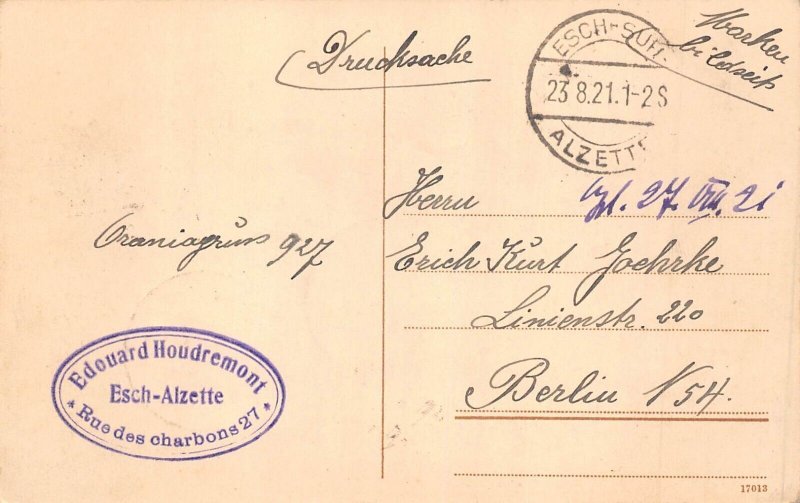 Drucksache
Marken
bildseit
ESCH-SUR-
23.8.21.1-2S
ALZETTE
Herrn
27. VIII. 21
Erich Kurt Goehrke
Linienstr. 220
Berlin N 54.
Oraniagruss 927
Edouard Houdremont
Esch-Alzette
* Rue des charbons 27 *
17013